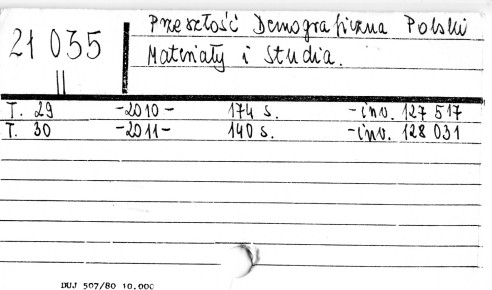 21 035
II
Przeszłość Demograficzna Polski
Materiały i Studia.
T. 29 -2010- 174 s. -inv. 127 517
T. 30 -2011- 140 s. -inv. 128 031
DUJ 507/80 10.000